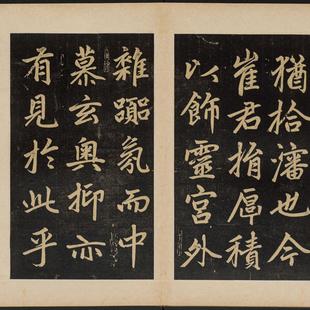 猶拾瀋也今
崔君捐厚積
以飾靈宮外
雜氛而中
慕玄奧抑亦
有見於此乎